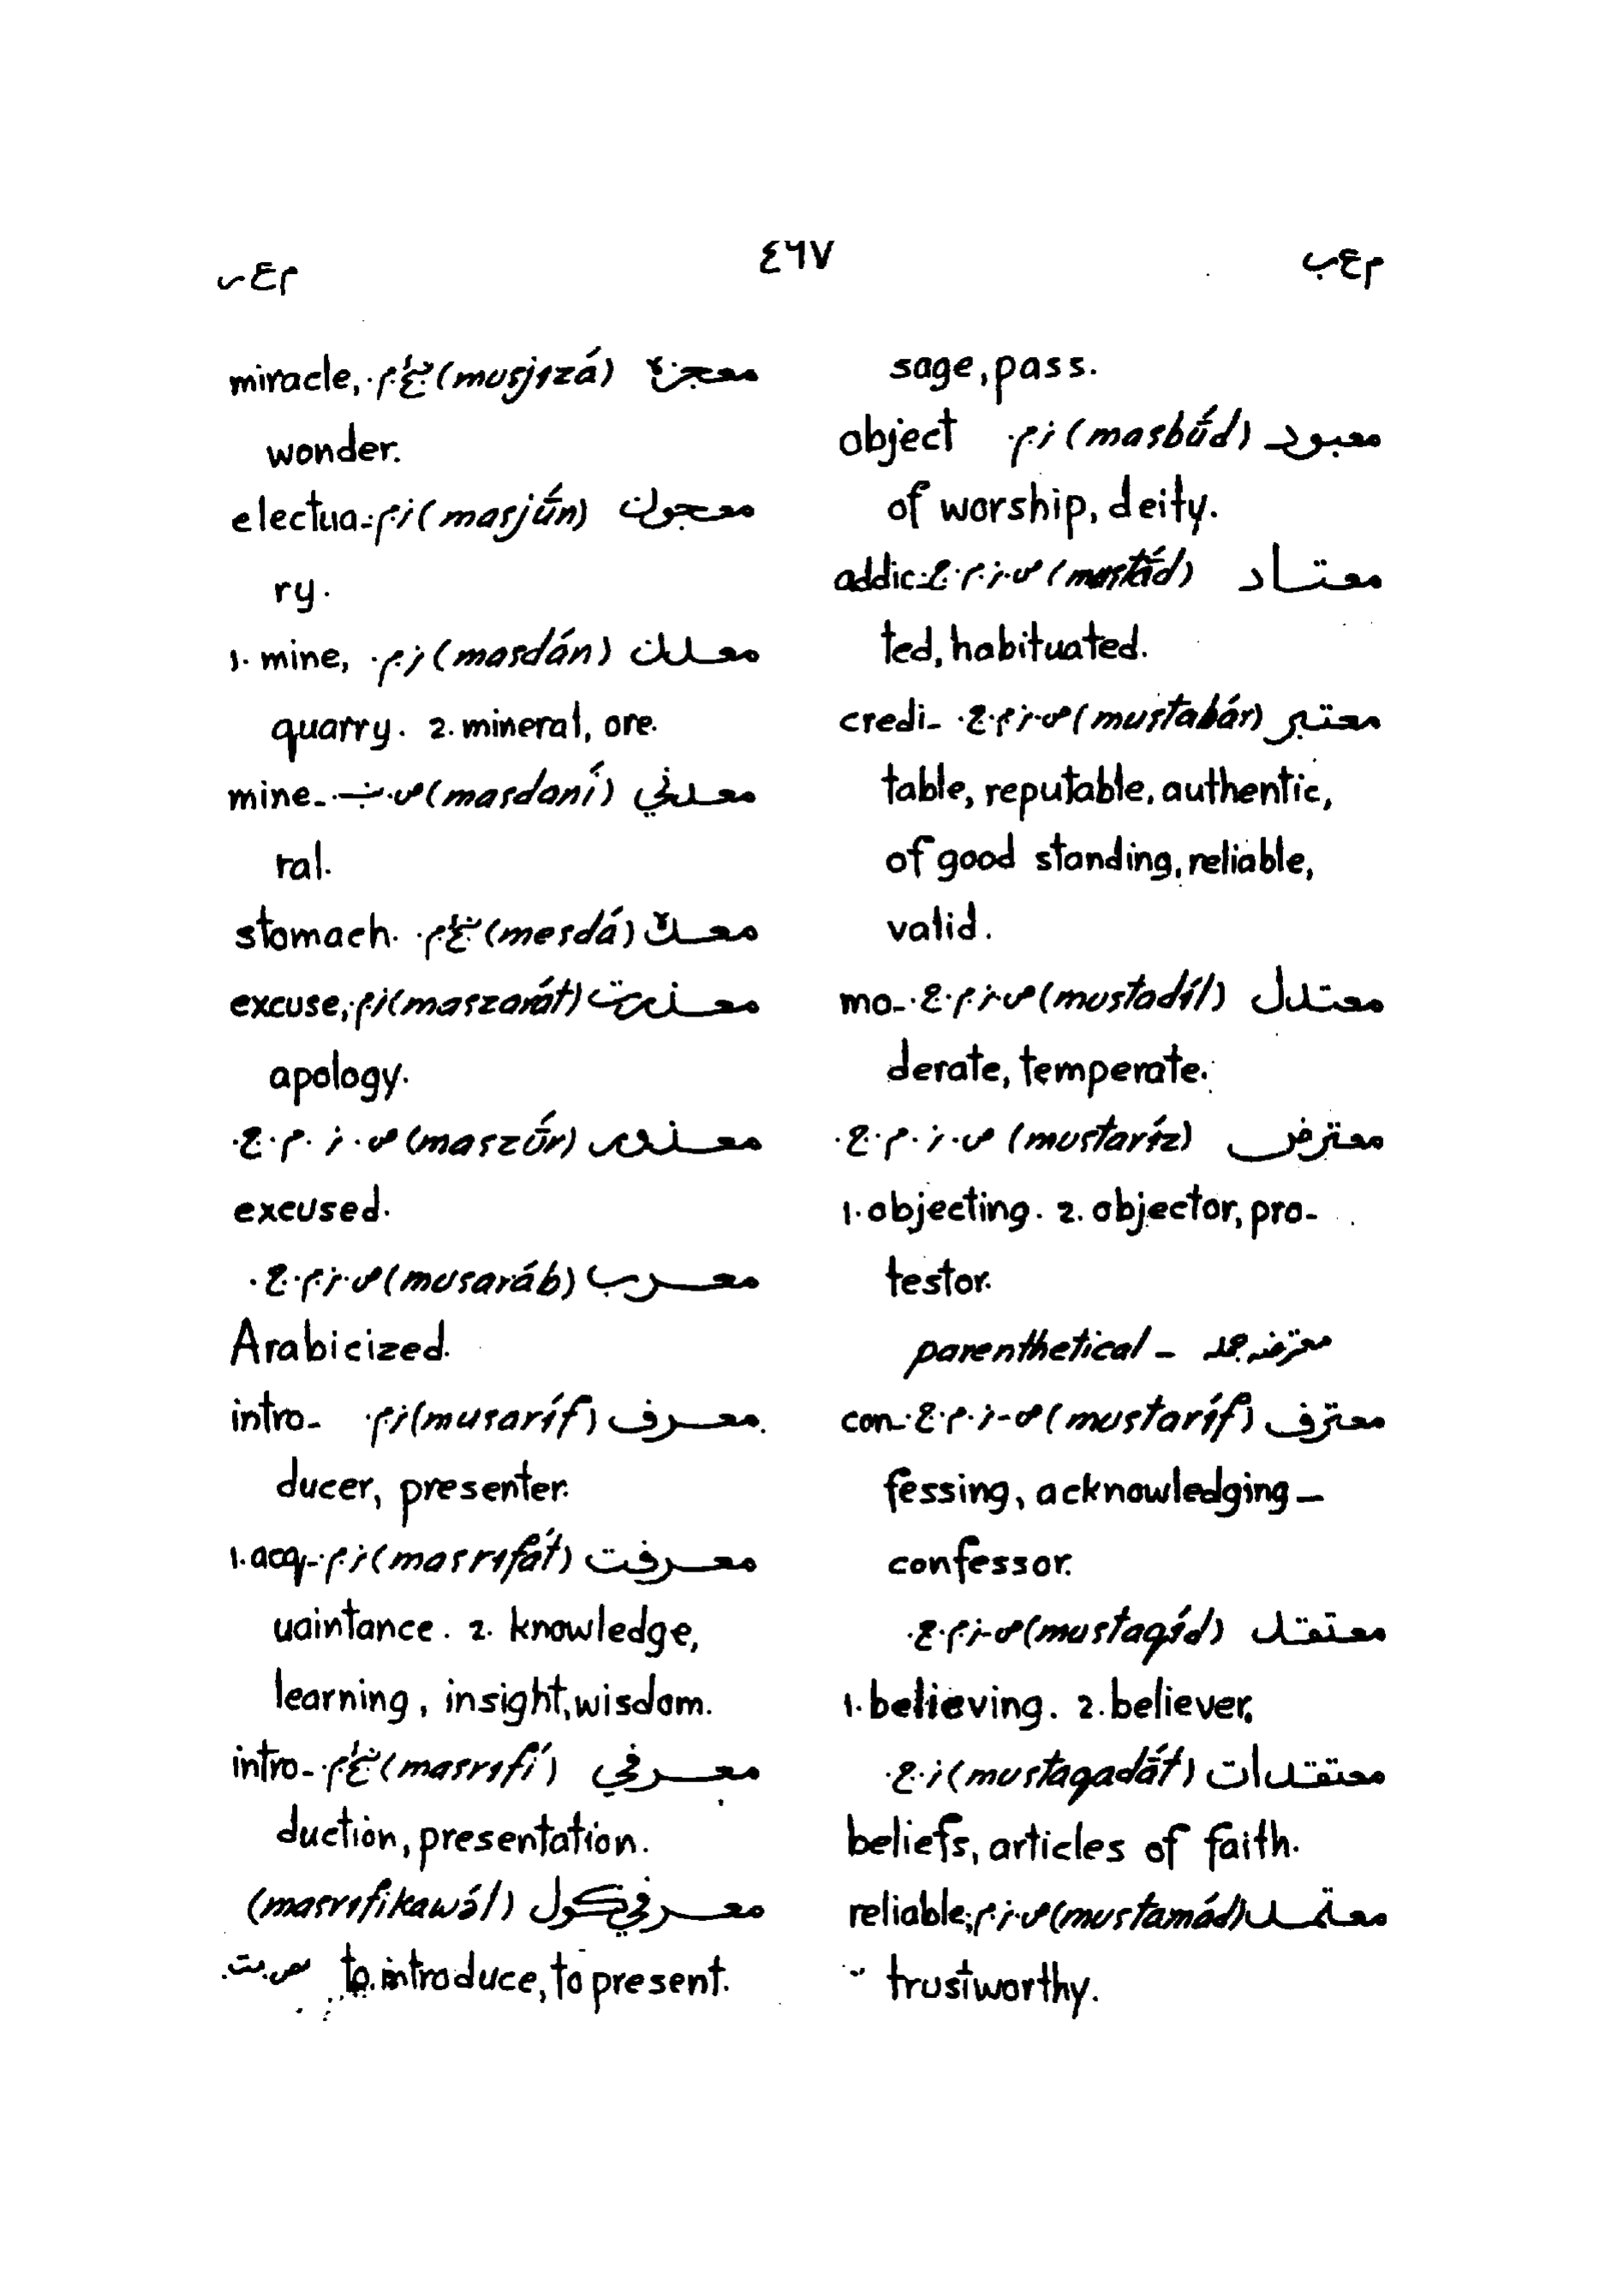 م ع ب
٤٦٧
م ع ر
sage, pass.
معبود (masbū́d) ز.م. object
of worship, deity.
معتاد (mustā́d) ص.ز.م.ج. addic-
ted, habituated.
معتبر (mustabár) ص.ز.م.ج. credi-
table, reputable, authentic,
of good standing, reliable,
valid.
معتدل (mustadíl) ص.ز.م.ج. mo-
derate, temperate.
معترض (mustaríz) ص.ز.م.ج.
1. objecting. 2. objector, pro-
testor.
parenthetical –
معترف (mustaríf) ص-ز.م.ج. con-
fessing, acknowledging –
confessor.
معتقد (mustaqíd) ص-ز.م.ج.
1. believing. 2. believer.
معتقدات (mustaqadā́t) ز.ج.
beliefs, articles of faith.
معتمد (mustamád) ص.ز.م. reliable,
trustworthy.
معجزه (musjɪzá) miracle,
wonder.
معجون (masjū́n) ز.م. electua-
ry.
معدن (masdán) ز.م. 1. mine,
quarry. 2. mineral, ore.
معدني (masdaní) ص. mine-
ral.
معده (mesdá) stomach.
معذرت (maszarát) ز.م. excuse,
apology.
معذور (maszū́r) ص.ز.م.ج.
excused.
معرب (musaráb) ص.ز.م.ج.
Arabicized.
معرف (musaríf) ز.م. intro-
ducer, presenter.
معرفت (masrɪfát) ز.م. 1. acq-
uaintance. 2. knowledge,
learning, insight, wisdom.
معرفي (masrɪfí) intro-
duction, presentation.
معرفي کول (masrɪfikawə́l)
to introduce, to present.